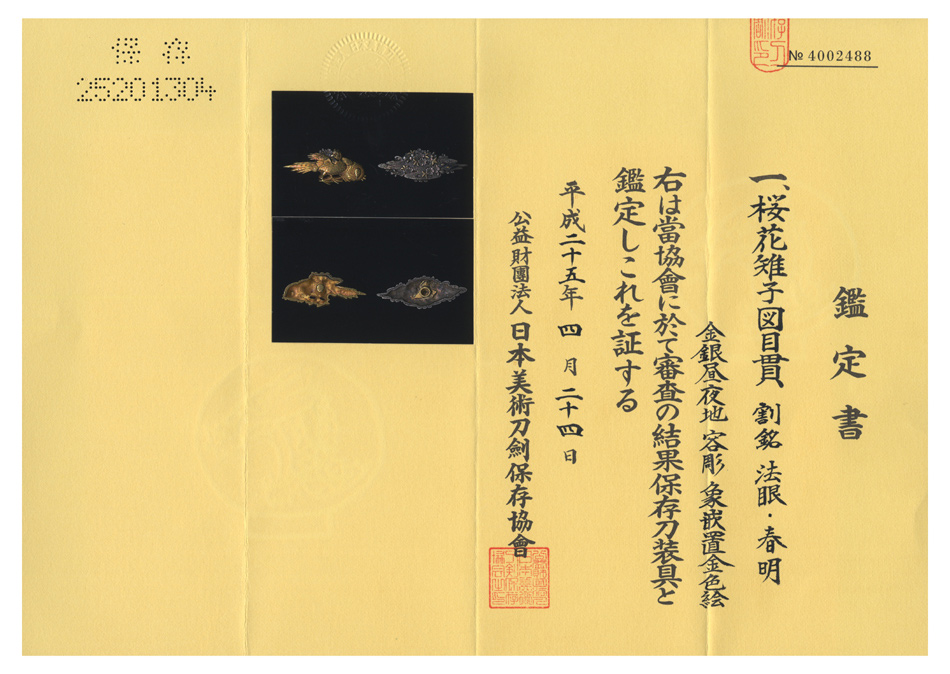 鑑定書
№ 4002488
一、桜花雉子図目貫 割銘 法眼・春明
金銀昼夜地 容彫 象嵌置金色絵
右は當協會に於て審査の結果保存刀装具と
鑑定しこれを証する
平成二十五年 四 月 二十四 日
公益財團法人 日本美術刀劍保存協會
保存
25201304